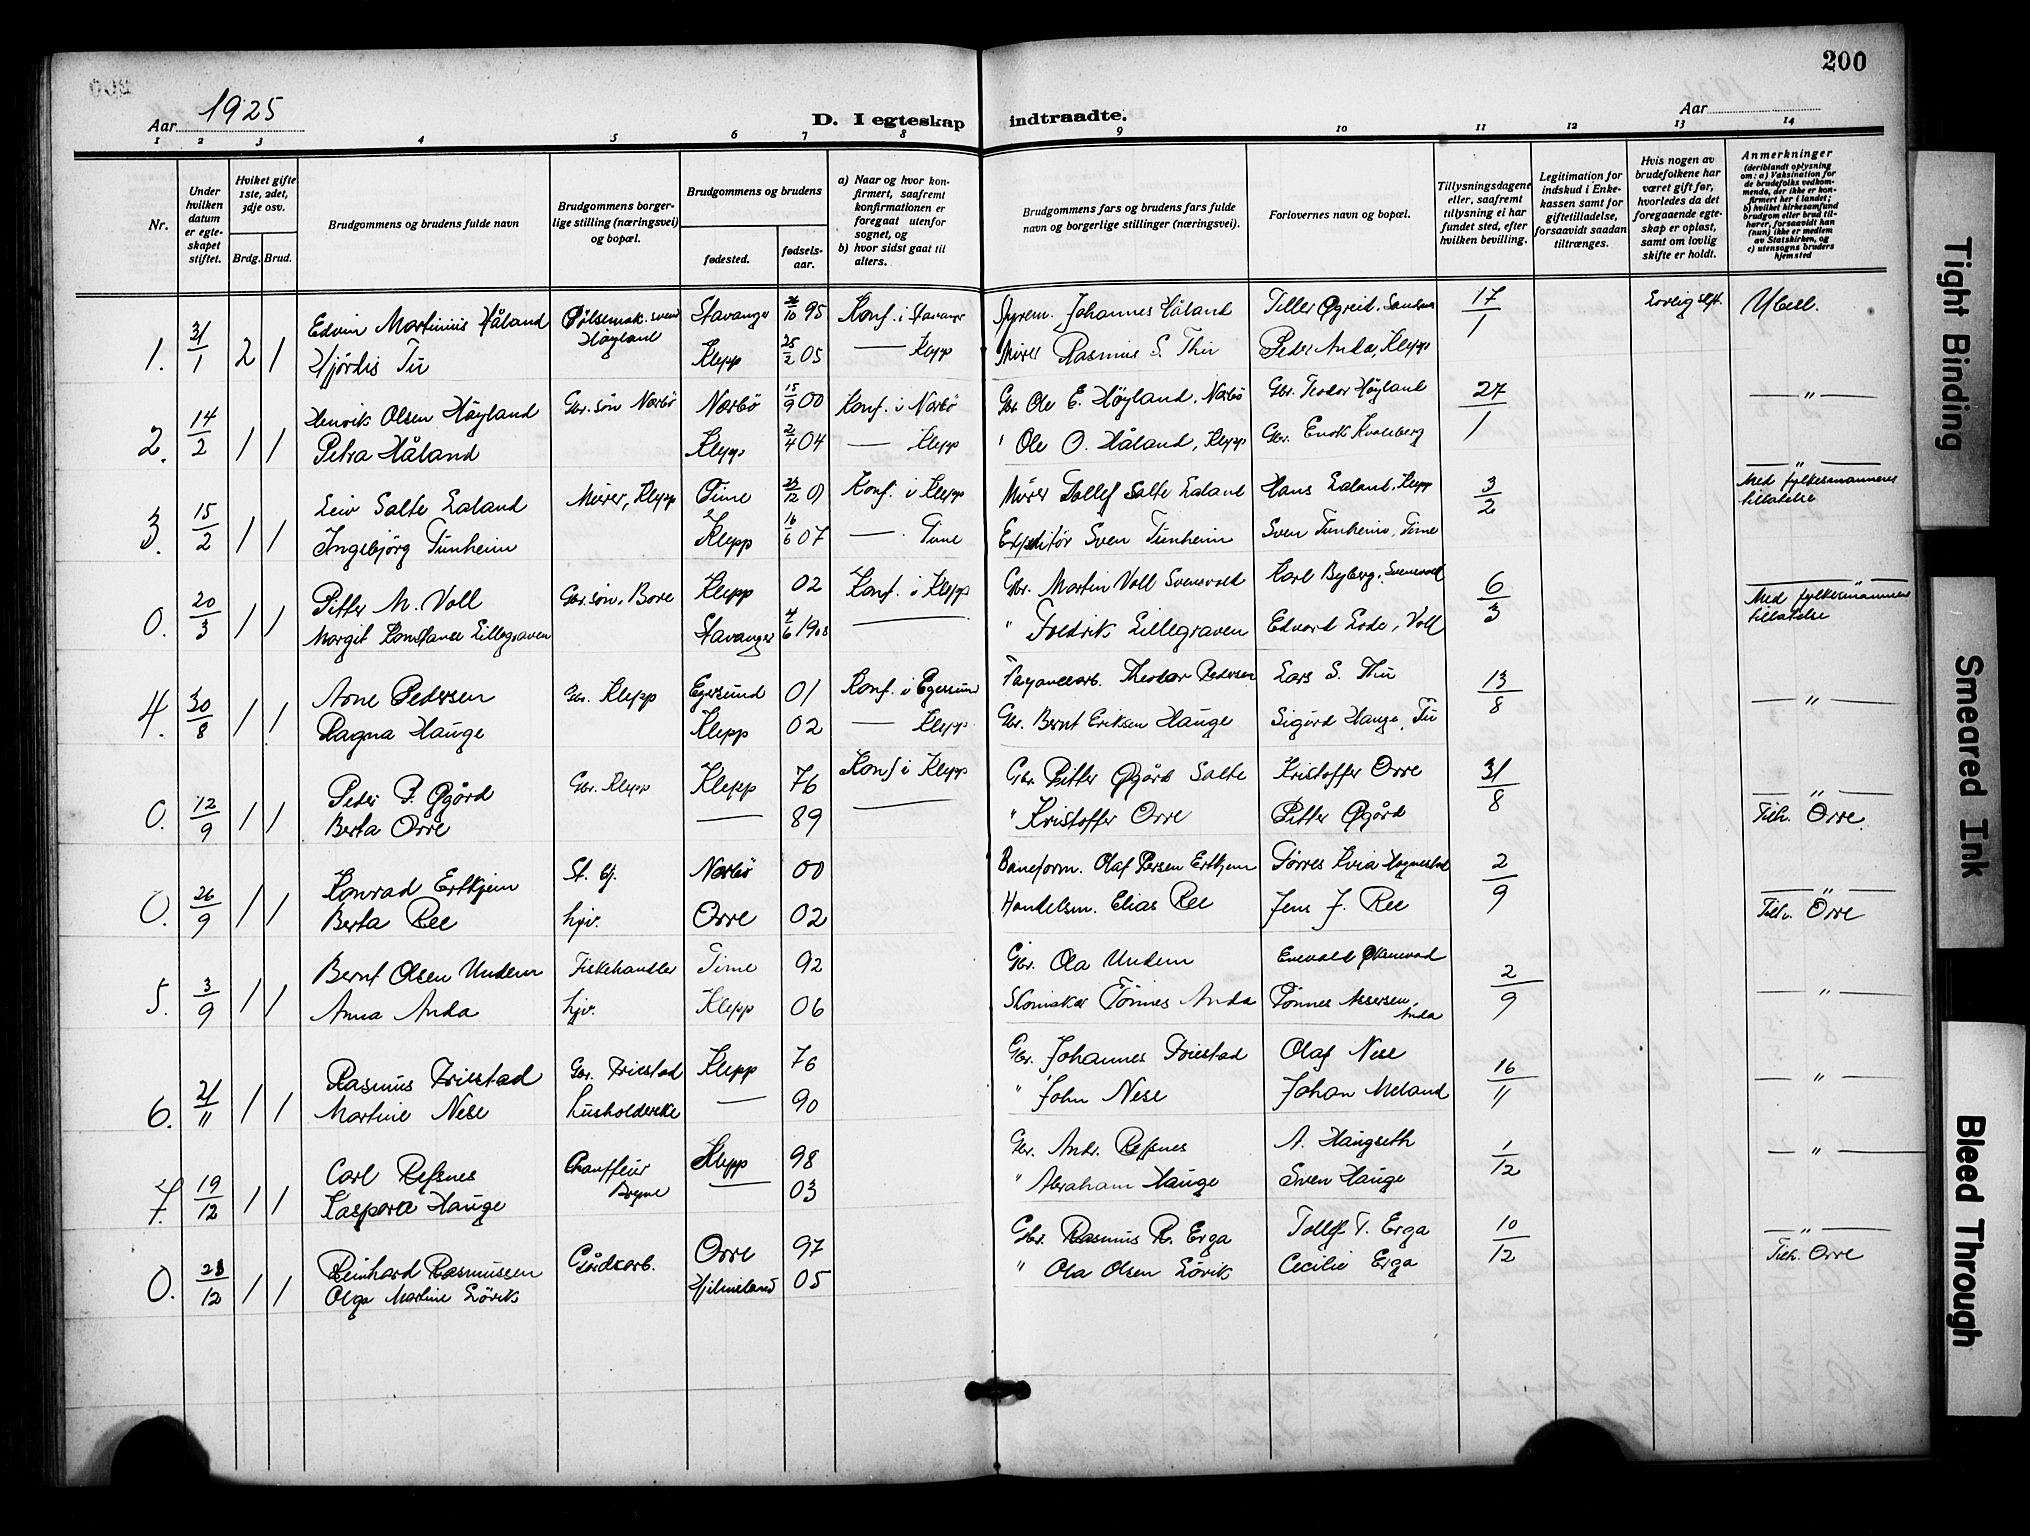 200
Aar 1925
D. I egteskap indtraadte.
Aar
1 2 3 4 5 6 7 8 9 10 11 12 13 14
Nr.
Under hvilken datum er egteskapet stiftet.
Hviket gifte 1ste, 2det, 3dje osv.
Brdg. Brud.
Brudgommens og brudens fulde navn
Brudgommens borgerlige stilling (næringsvei) og bopæl.
Brudgommens og brudens
fødested.
fødselsaar.
a) Naar og hvor konfirmert, saafremt konfirmationen er foregaat utenfor sognet, og
b) hvor sidst gaat til alters.
Brudgommens fars og brudens fars fulde navn og borgerlige stillinger (næringsvei).
Forlovernes navn og bopæl.
Tillysningsdagene eller, saafremt tillysning ei har fundet sted, efter hvilken bevilling.
Legitimation for indskud i Enkekassen samt for giftetilladelse, forsaavidt saadan tiltrænges.
Hvis nogen av brudefolkene har været gift før, hvorledes da det foregaaende egteskap er opløst, samt om lovlig skifte er holdt.
Anmerkninger (deriblandt oplysning om: a) Vaksination for de brudefolks vedkommende, der ikke er konfirmert her i landet; b) hvilket kirkesamfund brudgom eller brud tilhører, forsaavidt han (hun) ikke er medlem av Statskirken, og c) utensogns bruders hjemsted
1. 31/1 2 1 Edvin Martinius Håland Pølsemak. svend Høyland Stavanger 26/10 95 Konf. i Stavanger Styrem. Johannes Håland Tiller Øgreid, Sandnes 17/1 Lovlig skift.
Hjørdis Tu Klepp 25/2 05 — Klepp Murer Rasmus S. Thu Peder Anda, Klepp
2. 14/2 1 1 Henrik Olsen Høyland Gbr. søn Nærbø Nærbø 15/9 00 Konf. i Nærbø Gbr. Ole E. Høyland, Nærbø Gbr. Teodor Høyland 27/1 — " —
Petra Håland Klepp 2/4 04 — Klepp " Ole O. Håland, Klepp Gbr. Endk Kvaleberg
3. 15/2 1 1 Leiv Salte Laland Murer, Klepp Time 28/12 01 Konf. i Klepp Murer Tollef Salte Laland Hans Laland, Klepp 3/2 — " — Med fylkesmannens tillatelse
Ingebjørg Tunheim Klepp 16/6 07 — Time Expeditør Sven Tunheim Sven Tunheim, Time
0. 20/3 1 1 Pitter M. Voll Gbr. søn, Bore Klepp 02 Konf. i Klepp Gbr. Martin Voll Svensvold Karl Byberg, Svensvoll 6/3 — " — Med fylkesmannens tillatelse
Margit Konstance Lillegraven Stavanger 4/6 1903 — " Fredrik Lillegraven Edvard Lode, Voll
4. 30/8 1 1 Arne Pedersen Gbr. Klepp Egersund 01 Konf. i Egersund Fayancearb. Theodor Pedersen Lars S. Thu 13/8 — " —
Ragna Hauge Klepp 02 — Klepp Gbr. Bernt Eriksen Hauge Sigurd Hauge, Tu
0. 12/9 1 1 Peder P. Øgård Gbr. Klepp Klepp 76 Konf i Klepp Gbr. Pitter Øgård Salte Kristoffer Orre 31/8 — " — Tilh. Orre.
Berta Orre — 89 — " Kristoffer Orre Pitter Øgård
0. 26/9 1 1 Konrad Ertkjem St. bj. Nærbø 00 Baneform. Olaf Persen Ertkjem Tørres Kvia Hognestad 2/9 — " — Tilh. Orre
Berta Ree hjv. Orre 02 Handelsm. Elias Ree Jens J. Ree
5. 3/9 1 1 Bernt Olsen Undem Fiskehandler Time 92 Gbr. Ola Undem 2/9 "
Anna Anda hjv. Klepp 06 Skomaker Tønnes Anda Tønnes Assersen, Anda
6. 21/11 1 1 Rasmus Friestad Gbr. Friestad Klepp 76 Gbr. Johannes Friestad Olaf Nese 16/11 — " —
Martine Nese Husholderske — 90 " John Nese Johan Meland
7. 19/12 1 1 Carl Refsnes Chauffeur Bryne Klepp 98 Gbr. Andr. Refsnes A. Haugseth 1/12 — " —
Kaspara Hauge — 03 " Abraham Hauge Sven Hauge
0. 28/12 1 1 Reinhard Rasmussen Gårdsarb. Orre 97 Gbr. Rasmus R. Erga Tollef T. Erga 10/12 — " — Tilh. Orre
Olga Martine Løvik Hjelmeland 05 " Ola Olsen Løvik Cecilie Erga
Tight Binding
Smeared Ink
Bleed Through